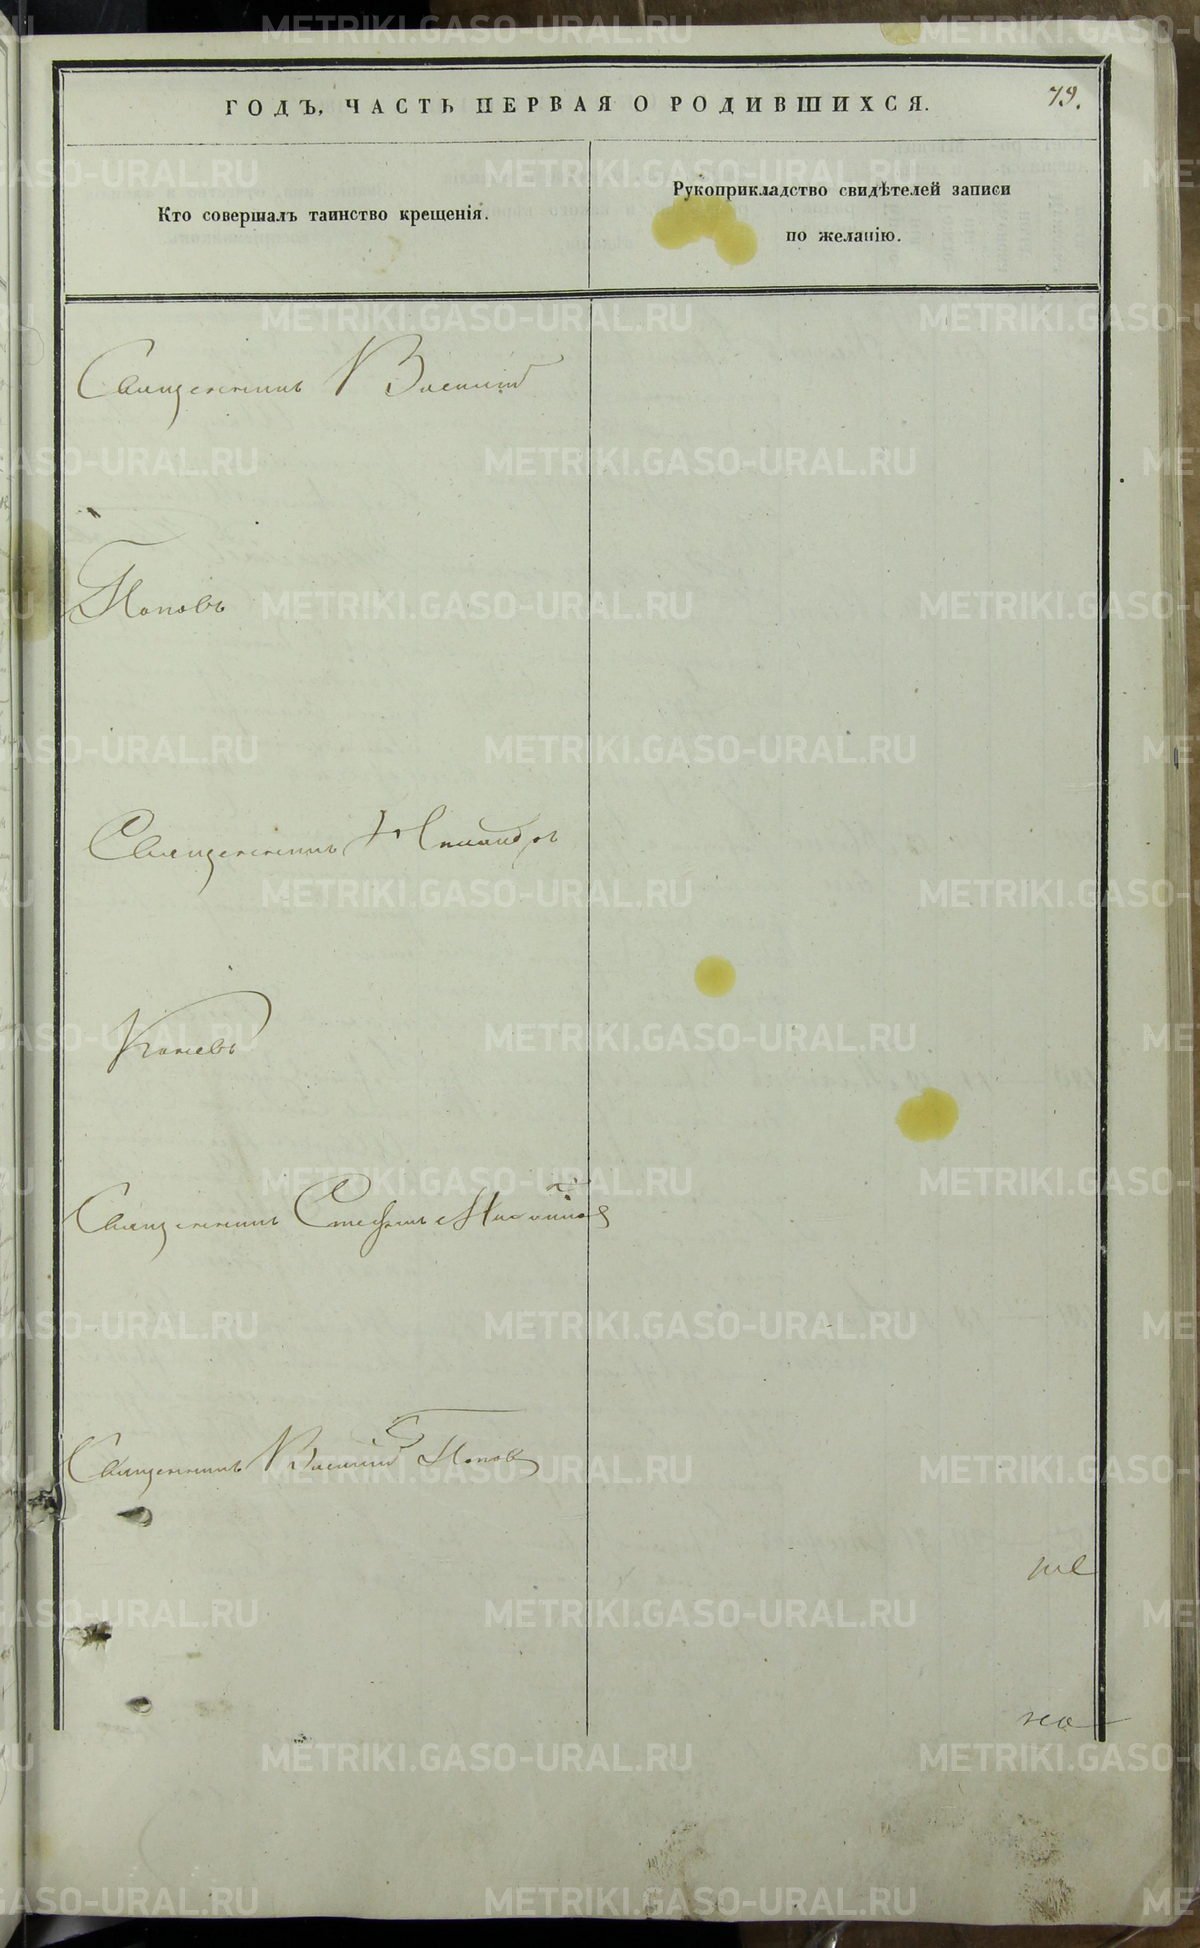 ГОДЪ, ЧАСТЬ ПЕРВАЯ О РОДИВШИХСЯ.
79.
Кто совершалъ таинство крещенія.
Рукоприкладство свидѣтелей записи
по желанію.
Священникъ Василій
Поповъ
Священникъ
Священникъ Стефанъ
Священникъ Василій Поповъ
METRIKI.GASO-URAL.RU